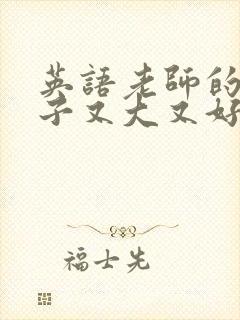 英語老師的
子又大又好
福士先